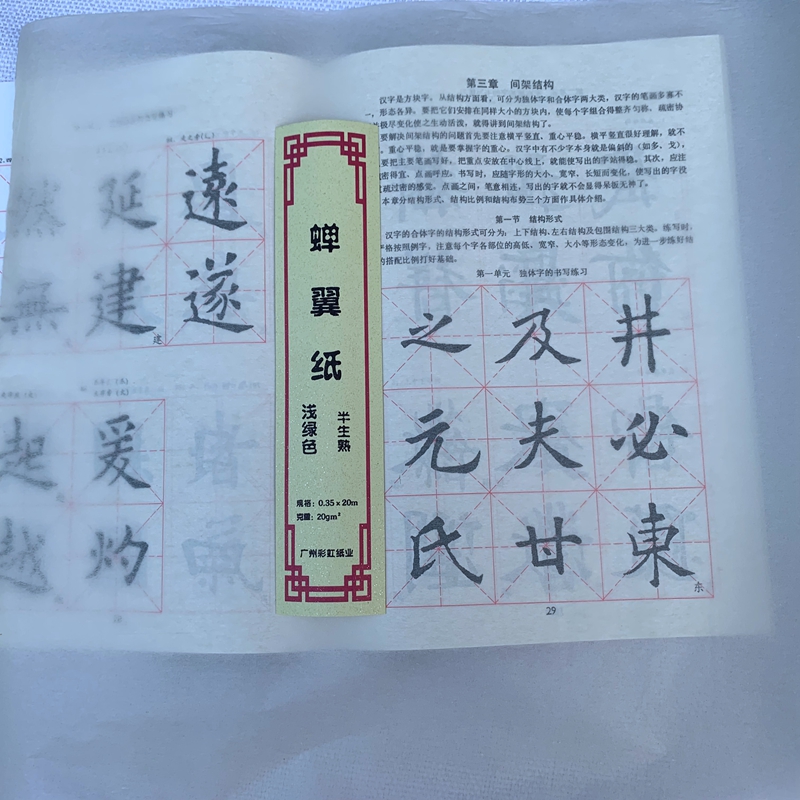 然 延 遠
無 建 遂
建
起 爰
越 灼
蝉翼纸
浅绿色
半生熟
规格：0.35×20m
克重：20gm²
广州彩虹纸业
第三章 间架结构
汉字是方块字，从结构方面看，可分为独体字和合体字两大类，汉字的笔画多寡不
一，形态各异。要把它们安排在同样大小的方块内，使每个字组合得整齐匀称，疏密协
极尽变化使之生动活泼，就得讲到间架结构了。
要解决间架结构的问题首先要注意横平竖直，重心平稳。横平竖直很好理解，就不
。重心平稳，就是要掌握字的重心。汉字中有不少字本身就是偏斜的（如多、戈），
要把主要笔画写好。把重点安放在中心线上，就能使写出的字站得稳。其次，应注
密得宜、点画呼应。书写时，应随字形的大小、宽窄、长短而变化，使写出的字没
疏过密的感觉。点画之间，笔意相连，写出的字就不会显得呆板无神了。
本章分结构形式，结构比例和结构布势三个方面作具体介绍。
第一节 结构形式
汉字的合体字的结构形式可分为：上下结构、左右结构及包围结构三大类。练写时，
格按照例字，注意每个字各部位的高低、宽窄、大小等形态变化，为进一步练好结
的搭配比例打好基础。
第一单元 独体字的书写练习
之 及 井
元 夫 必
氏 甘 東
东
29